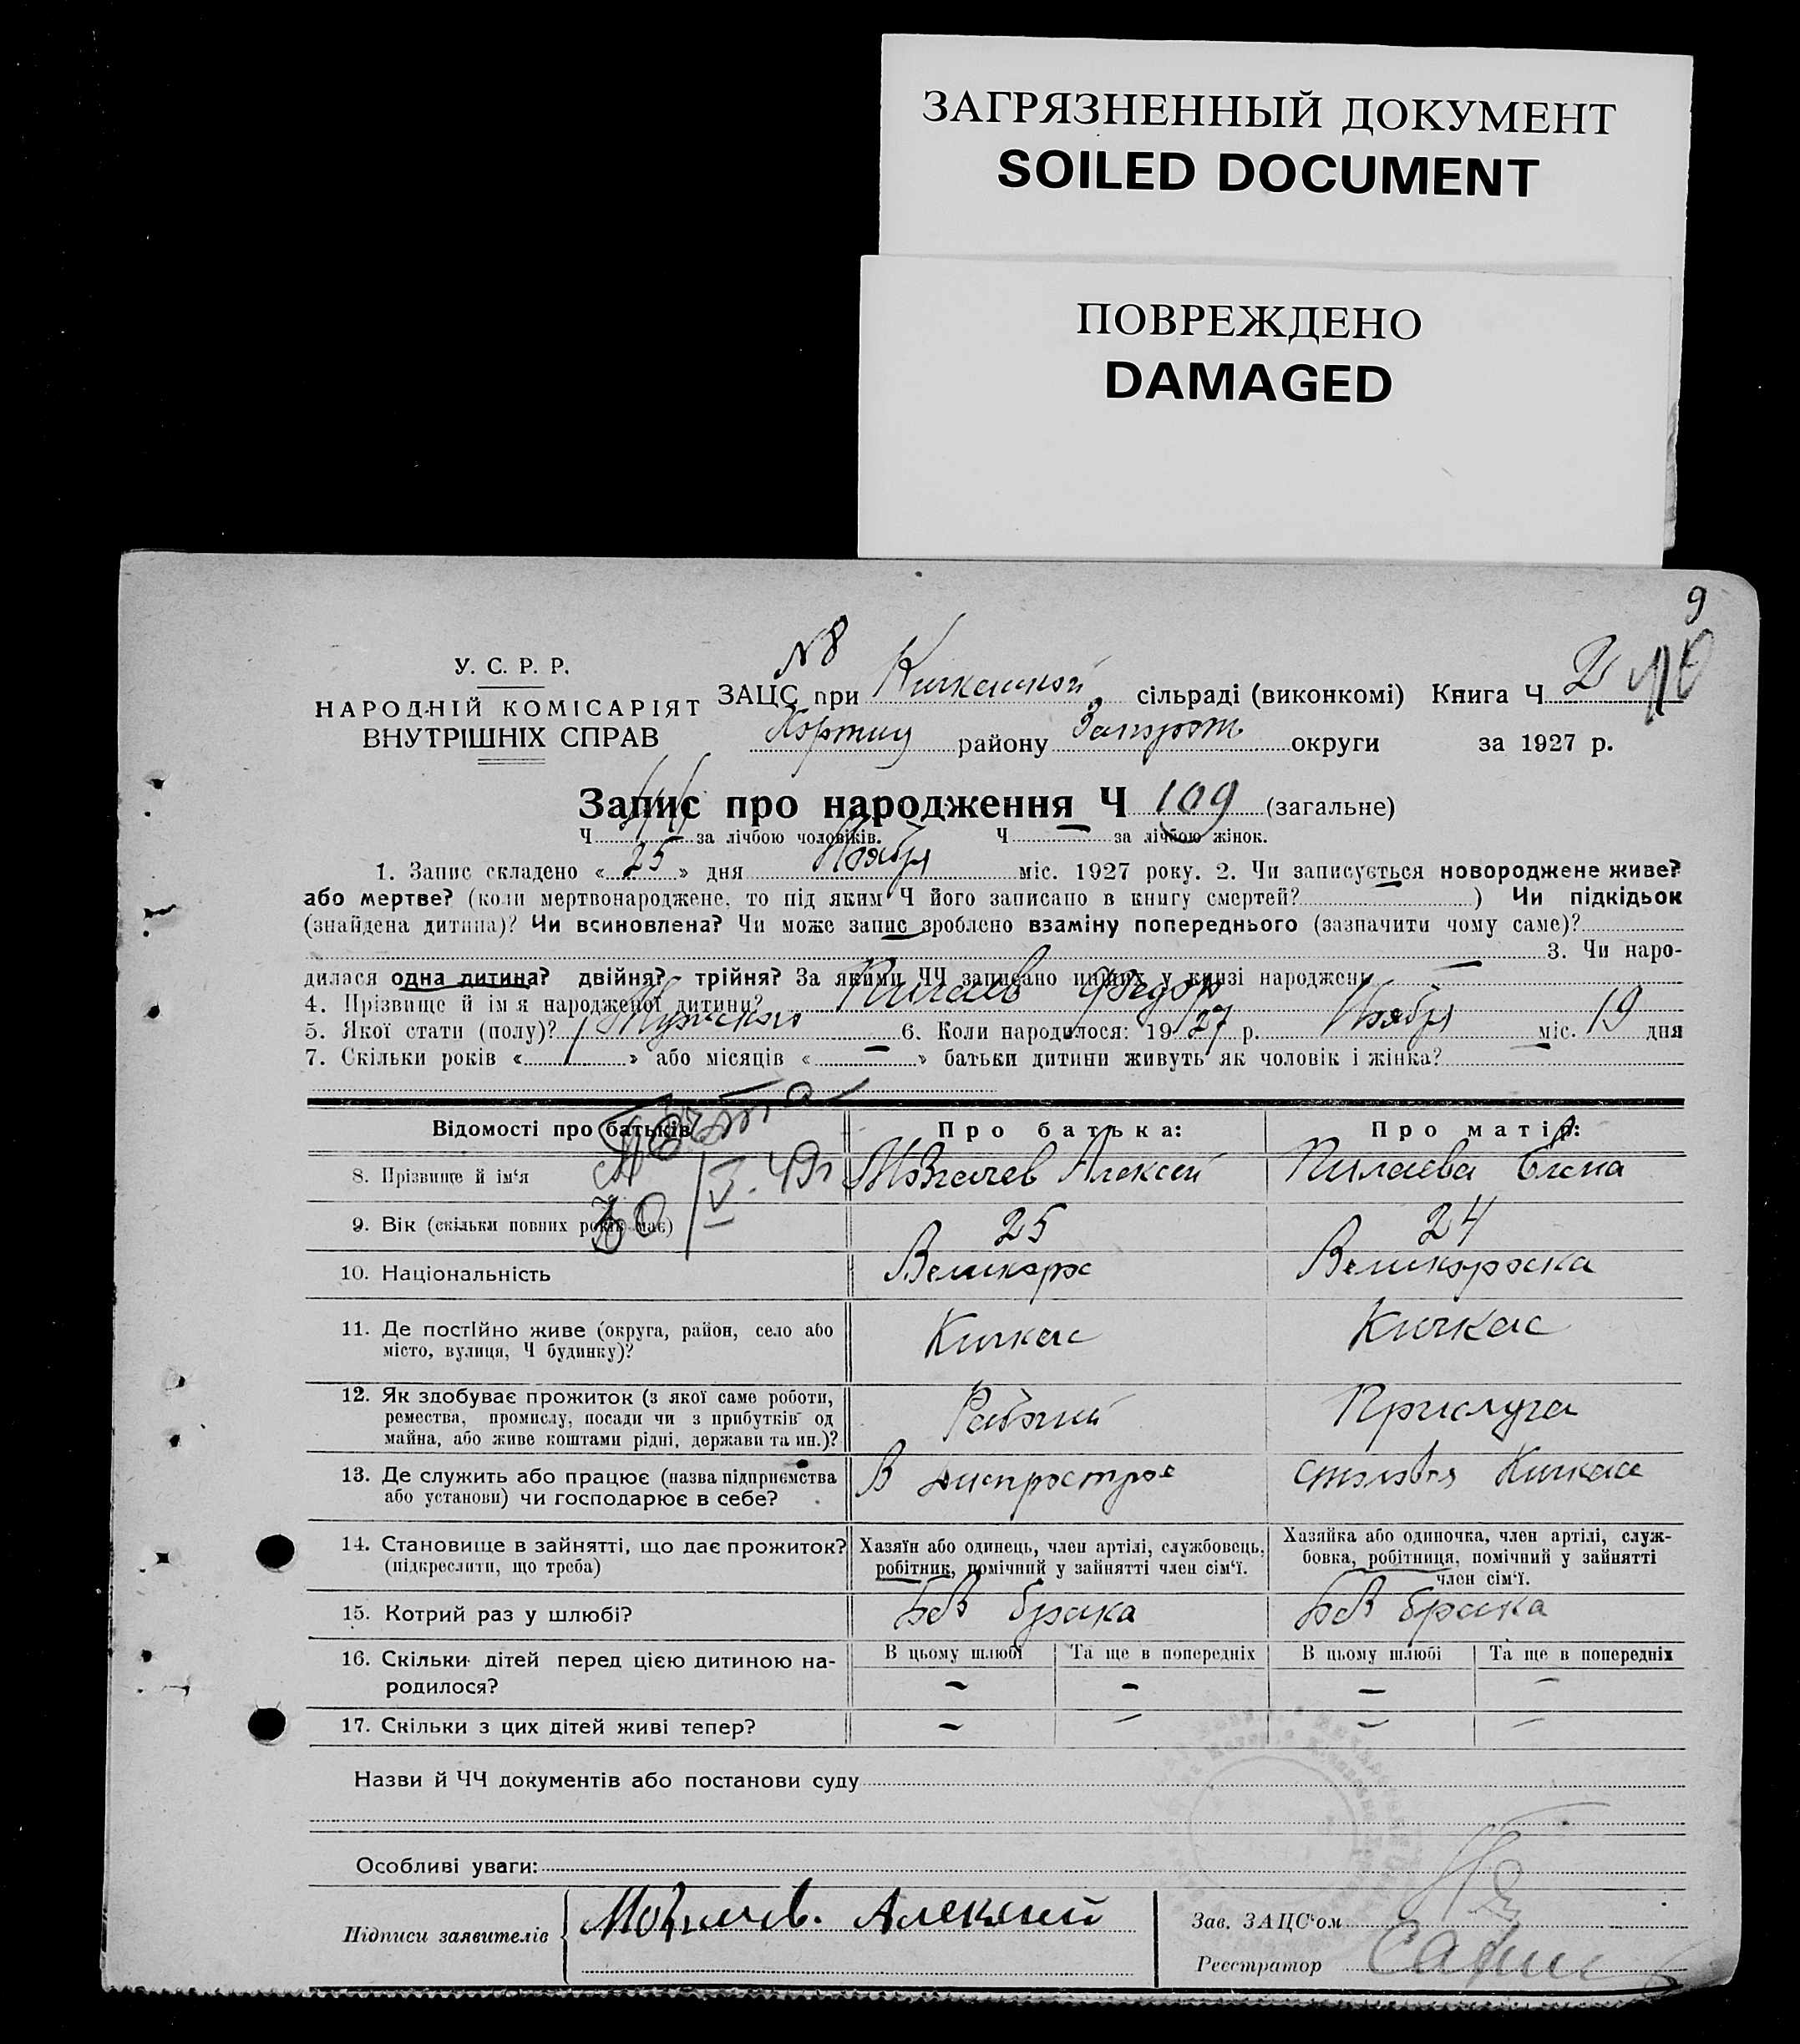 ЗАГРЯЗНЕННЫЙ ДОКУМЕНТ
SOILED DOCUMENT
ПОВРЕЖДЕНО
DAMAGED
9
N 8
У. С. Р. Р.
НАРОДНІЙ КОМІСАРІЯТ
ВНУТРІШНІХ СПРАВ
ЗАЦС при Кичкасской сільраді (виконкомі) Книга Ч
Хортиц району Запорож. округи за 1927 р.
Запис про народження Ч 109 (загальне)
Ч за лічбою чоловіків. Ч — за лічбою жінок.
1. Запис складено « 25 » дня Ноября міс. 1927 року. 2. Чи записується новороджене живе?
або мертве? (коли мертвонароджене, то під яким Ч його записано в книгу смертей? ) Чи підкідьок
(знайдена дитина)? Чи всиновлена? Чи може запис зроблено взаміну попереднього (зазначити чому саме)?
3. Чи наро-
дилася одна дитина? двійня? трійня? За якими ЧЧ записано инших у книзі народжень —
4. Прізвище й ім'я народженої дитини? Пилаев Федор
5. Якої стати (полу)? Мужского 6. Коли народилося: 1927 р. Ноября міс. 19 дня
7. Скільки років « 1 » або місяців « — » батьки дитини живуть як чоловік і жінка? —
Відомості про батьків
Про батька:
Про матір:
8. Прізвище й ім'я
Алексей
Пилаева Елена
30/V-49г
9. Вік (скільки повних років має)
25
24
10. Національність
Великорос
Великороска
11. Де постійно живе (округа, район, село або
місто, вулиця, Ч будинку)?
Кичкас
Кичкас
12. Як здобуває прожиток (з якої саме роботи,
ремества, промислу, посади чи з прибутків од
майна, або живе коштами рідні, держави та ин.)?
Рабочий
Прислуга
13. Де служить або працює (назва підприємства
або установи) чи господарює в себе?
В Днепрострое
столовая Кичкаса
14. Становище в зайнятті, що дає прожиток?
(підкреслити, що треба)
Хазяїн або одинець, член артілі, службовець,
робітник, помічний у зайнятті член сім'ї.
Хазяйка або одиночка, член артілі, служ-
бовка, робітниця, помічний у зайнятті
член сім'ї.
15. Котрий раз у шлюбі?
Без брака
Без брака
16. Скільки дітей перед цією дитиною на-
родилося?
В цьому шлюбі
Та ще в попередніх
В цьому шлюбі
Та ще в попередніх
— — — —
17. Скільки з цих дітей живі тепер?
— — — —
Назви й ЧЧ документів або постанови суду
Особливі уваги:
Підписи заявителів
Алексей
Зав. ЗАЦС'ом
Реєстратор